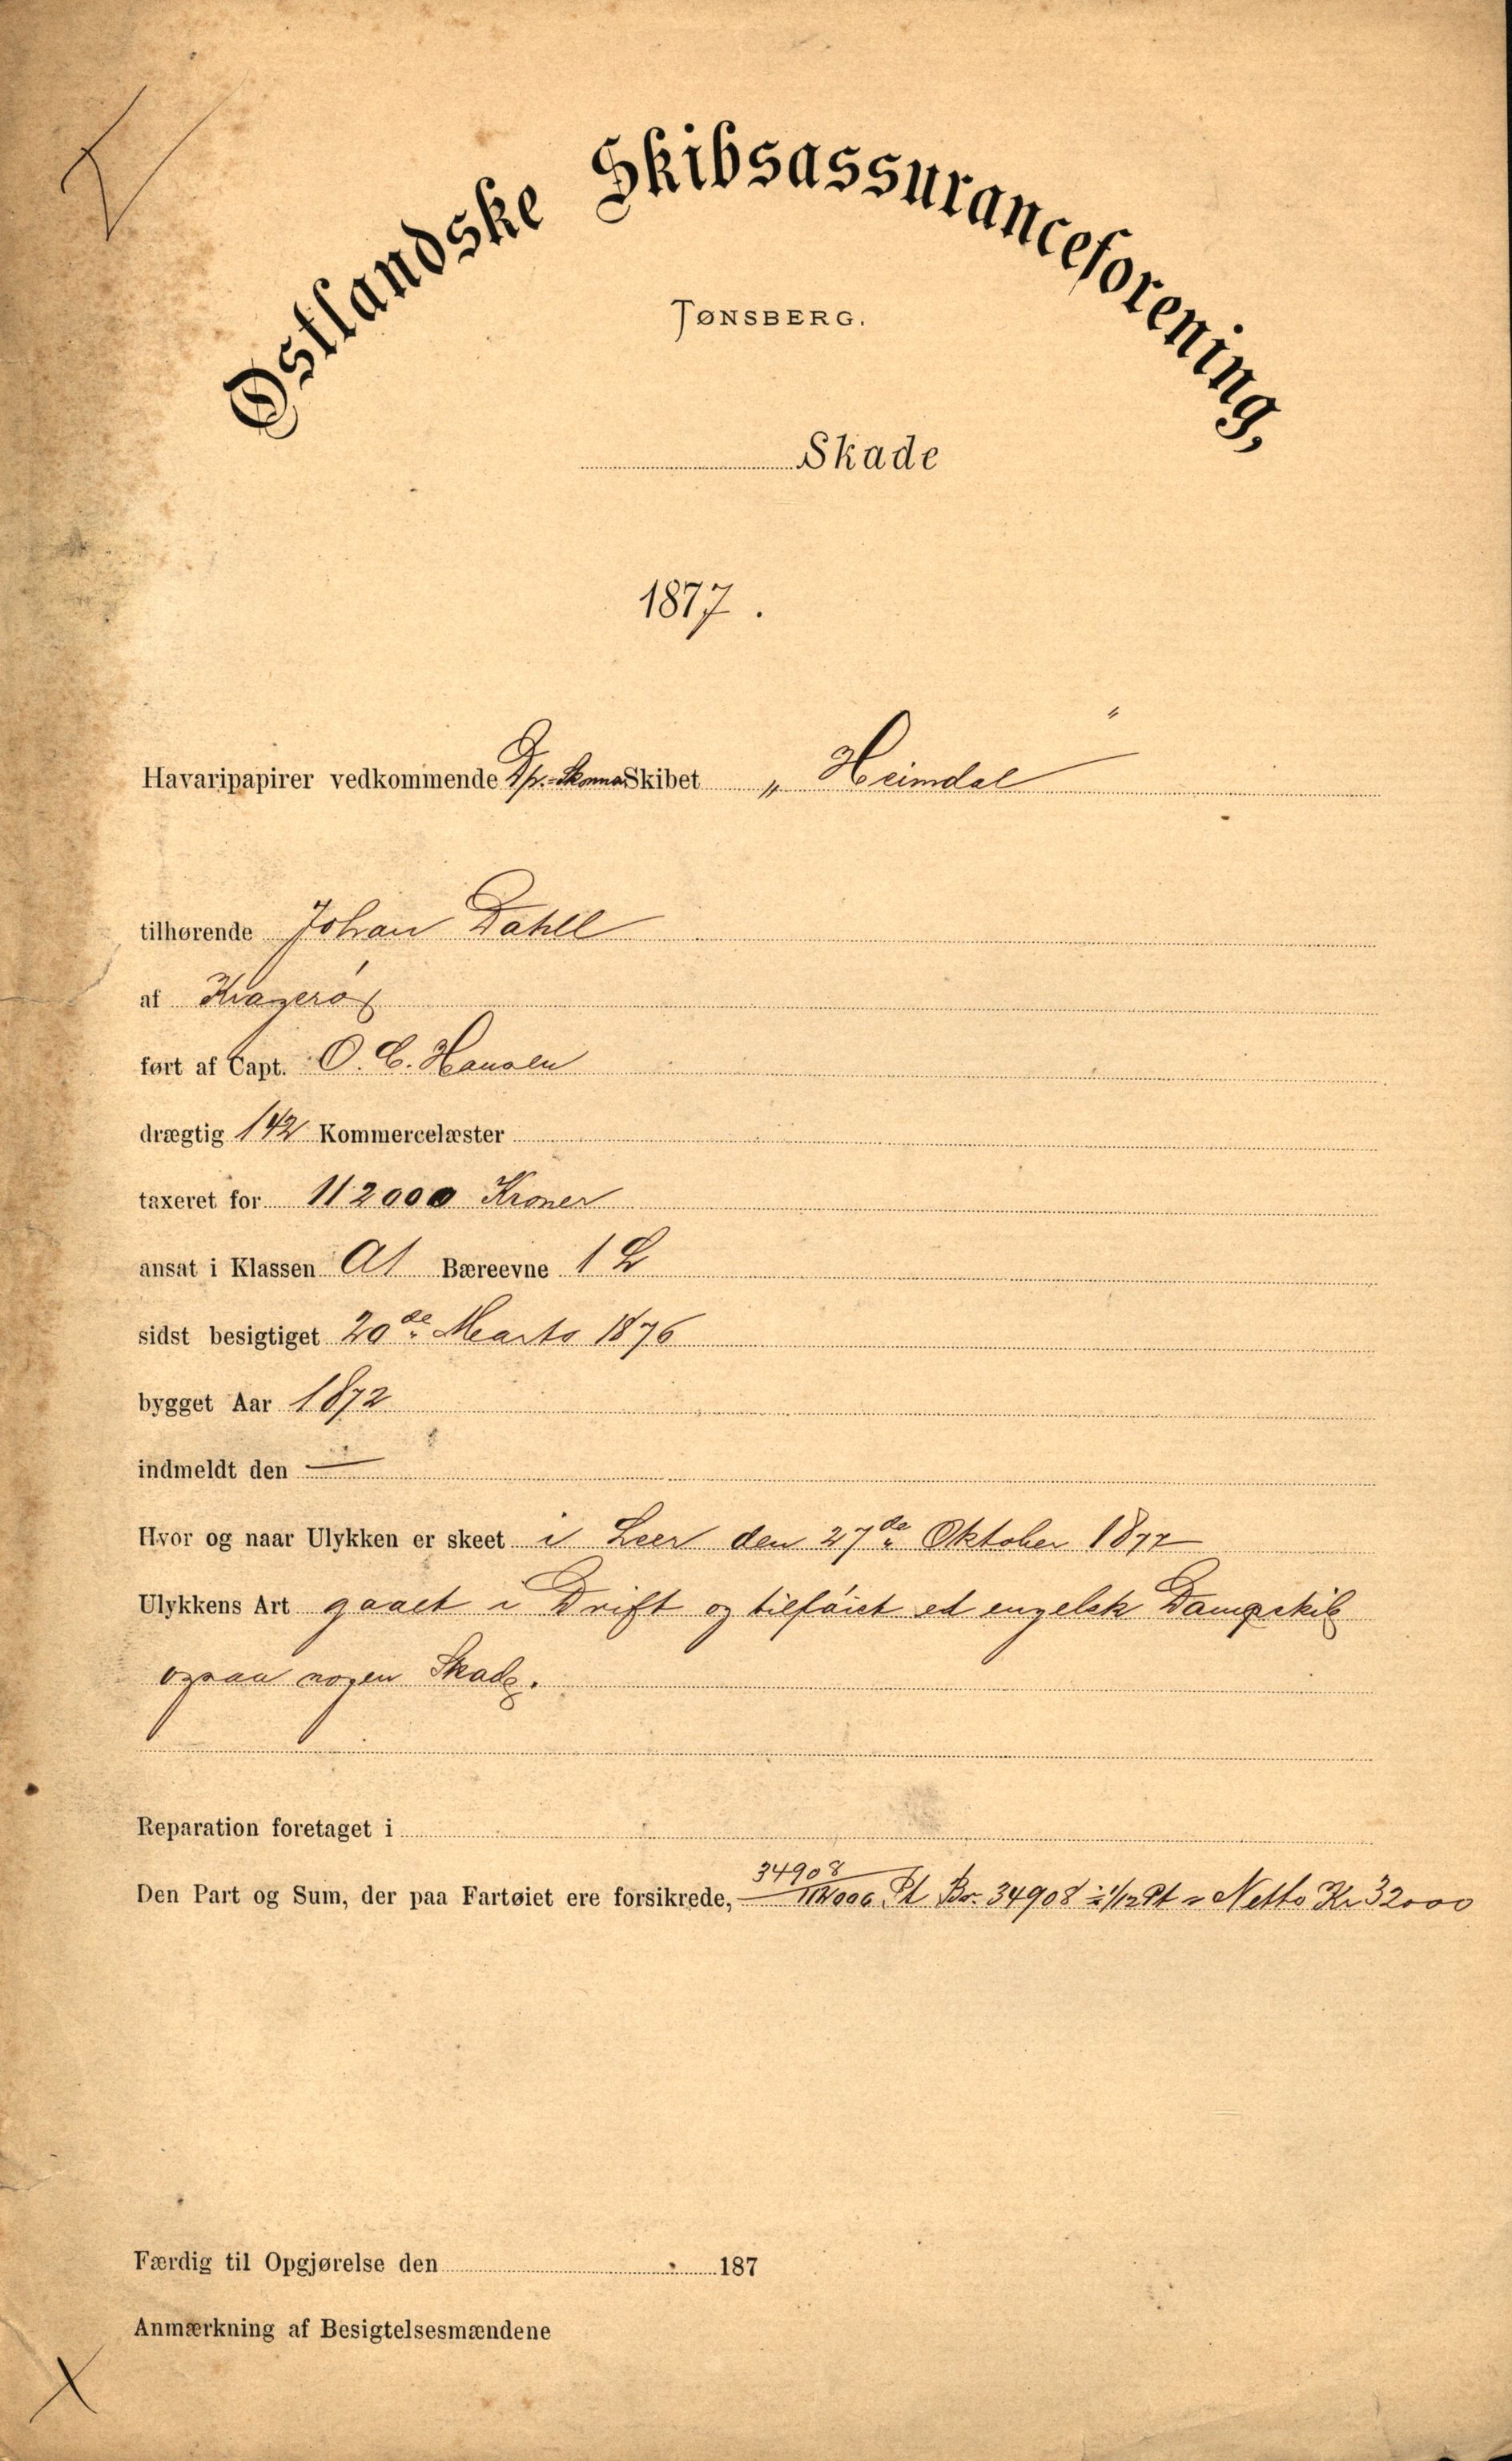 Østlandske Skibsassuranceforening,
TØNSBERG.
Skade
1877.
Havaripapirer vedkommende Dp.-Skonna Skibet „Heimdal"
tilhørende Johan Dahll
af Kragerø
ført af Capt. O. C. Hansen
drægtig 142 Kommercelæster
taxeret for 112000 Kroner
ansat i Klassen A1 Bæreevne 1 L
sidst besigtiget 20de Marts 1876
bygget Aar 1872
indmeldt den —
Hvor og naar Ulykken er skeet i Leer den 27de Oktober 1877
Ulykkens Art gaaet i Drift og tilføiet et engelsk Dampskib
ogsaa nogen Skade.
Reparation foretaget i
Den Part og Sum, der paa Fartøiet ere forsikrede, 34908/112000 Pt Br. 34908 ÷ 1/12 Pt = Netto Kr 32000
Færdig til Opgjørelse den 187
Anmærkning af Besigtelsesmændene